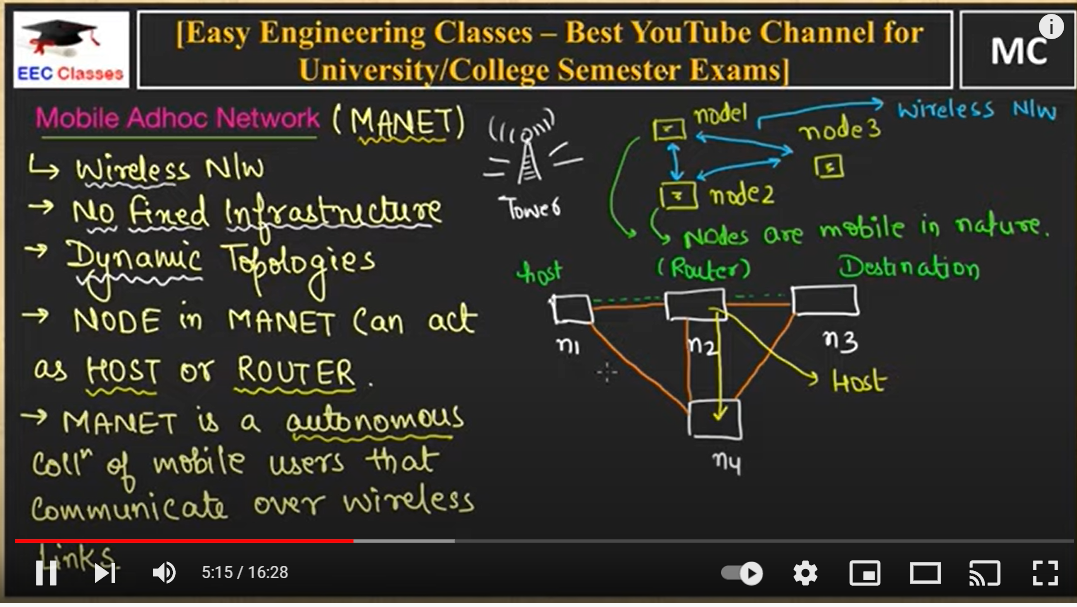 [Easy Engineering Classes – Best YouTube Channel for
University/College Semester Exams]
EEC Classes
MC
i
Mobile Adhoc Network (MANET)
↳ Wireless N/w
→ No fixed Infrastructure
→ Dynamic Topologies
→ NODE in MANET can act
as HOST or ROUTER.
→ MANET is a autonomous
collⁿ of mobile users that
communicate over wireless
links.
Tower
node1
node2
node3
Wireless N/w
Nodes are mobile in nature.
host
(Router)
Destination
n1
n2
n3
Host
n4
5:15 / 16:28